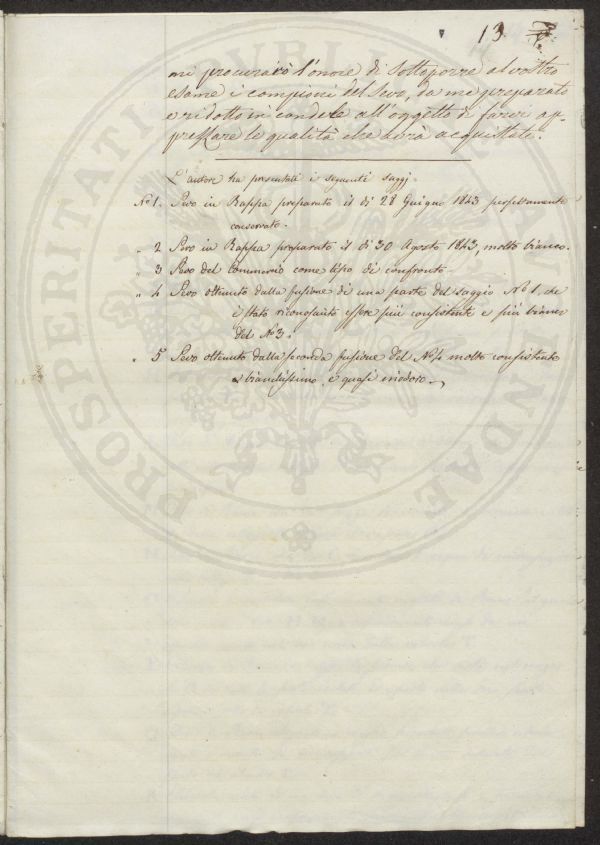 13.
mi procurerò l'onore di sottoporre al vostro
esame i campioni del Sevo, da me preparato
e ridotto in candele all'oggetto di farvi ap-
prezzare le qualità che avrà acquistate.
L'autore ha presentate i seguenti saggj.
No 1. Sevo in Rappa preparato il di 28 Giugno 1843 perfettamente
conservato.
" 2 Sevo in Rappa preparato il di 30 Agosto 1843, molto bianco.
" 3 Sevo del Commercio come tipo di confronto.
" 4 Sevo ottenuto dalla fusione di una parte del Saggio No 1. che
è stato riconosciuto essere più consistente e più bianco
del No 3.
" 5 Sevo ottenuto dalla seconda fusione del No 4 molto consistente
bianchissimo, e quasi inodoro.
PROSPERITATI PVBLICAE AVGENDAE